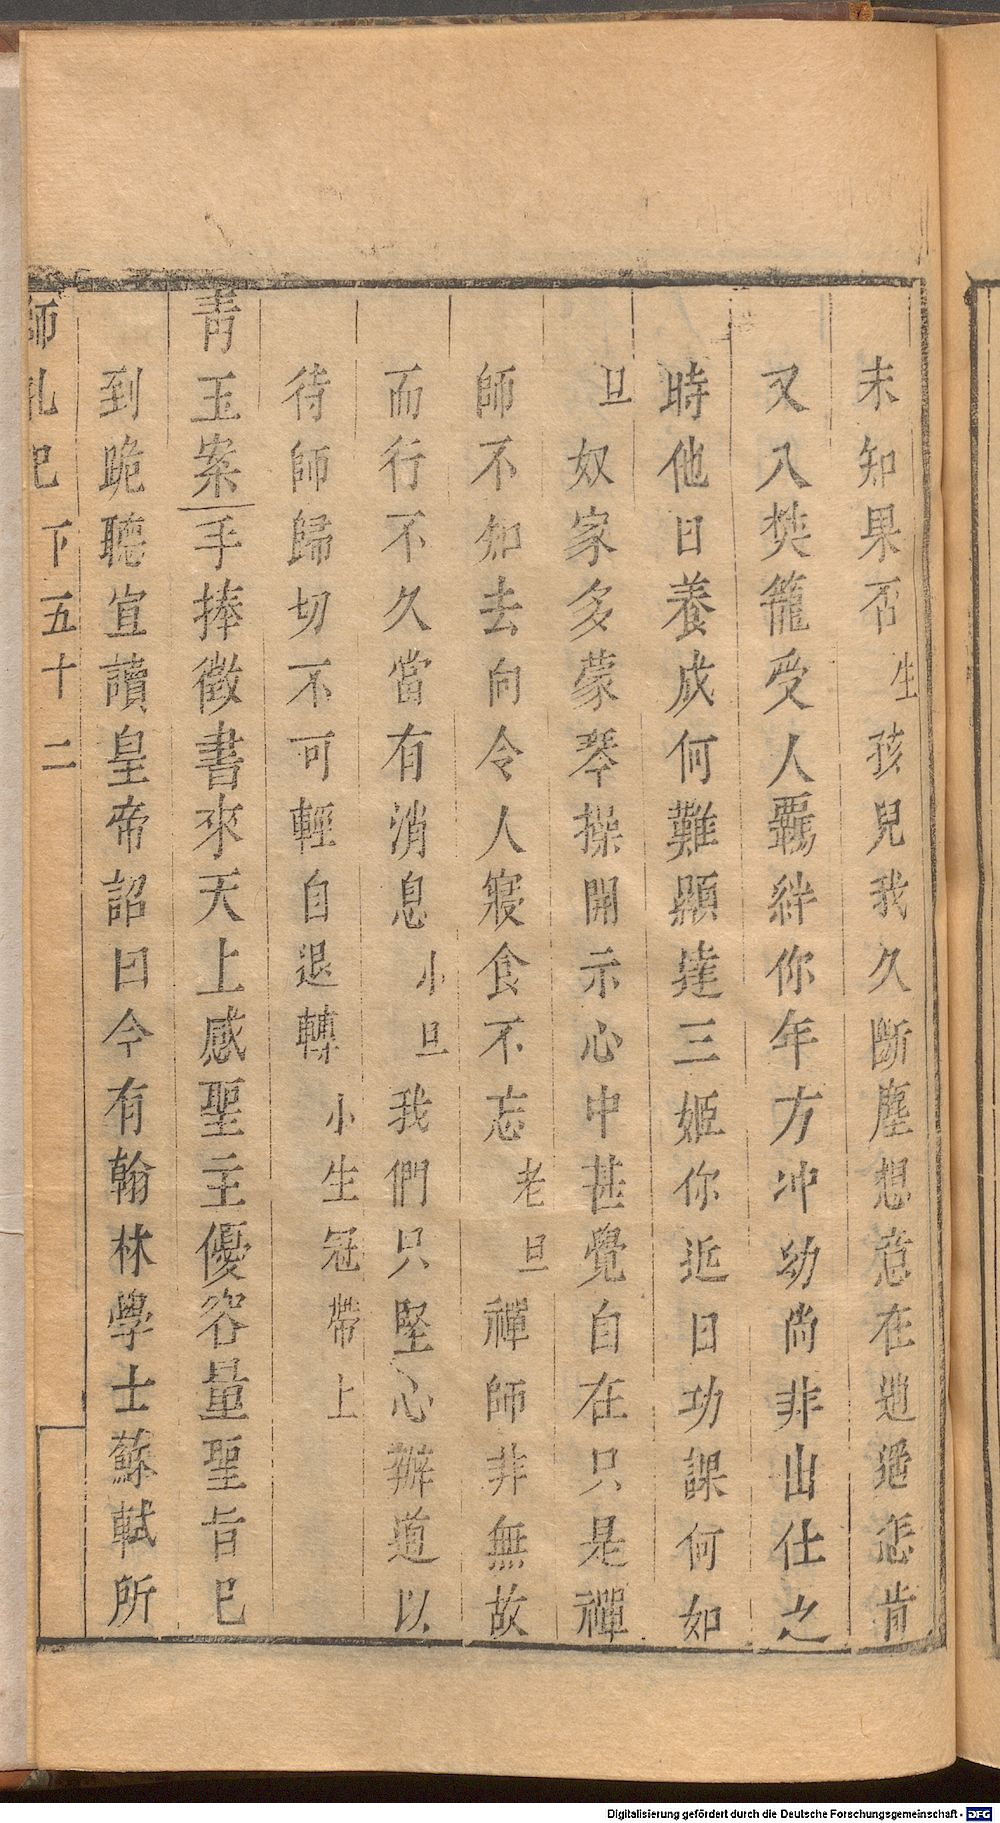 未知果否生孩兒我久斷塵想意在逃遁怎肯
又入樊籠受人羈絆你年方冲幼尚非出仕之
時他日養成何難顯達三姬你近日功課何如
旦奴家多蒙琴操開示心中甚覺自在只是禪
師不知去向令人寢食不忘老旦禪師非無故
而行不久當有消息小旦我們只堅心辦道以
待師歸切不可輕自退轉小生冠帶上
青玉案手捧徵書來天上感聖主優容量聖旨巳
到跪聽宣讀皇帝詔曰今有翰林學士蘇軾所
師乩記 下五十二
Digitalisierung gefördert durch die Deutsche Forschungsgemeinschaft - DFG